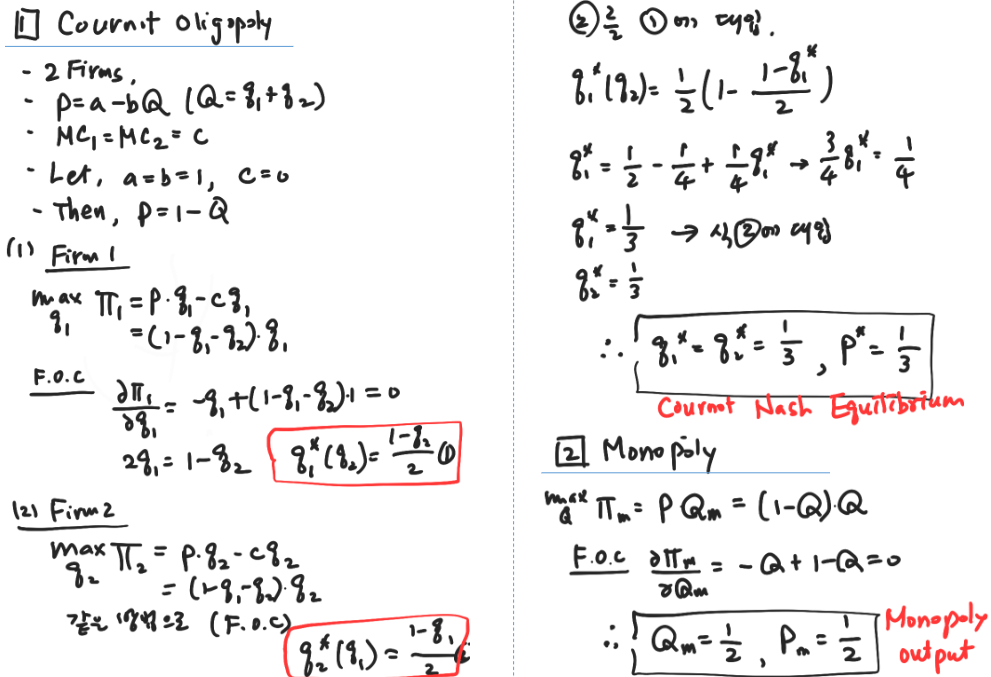 1 Cournot Oligopoly
- 2 Firms,
- P=a-bQ (Q=q₁+q₂)
- MC₁=MC₂=c
- Let, a=b=1, c=0
- Then, P=1-Q
(1) Firm 1
max Π₁ = P·q₁-cq₁
q₁
=(1-q₁-q₂)·q₁
F.O.C
∂Π₁/∂q₁ = -q₁+(1-q₁-q₂)·1=0
2q₁=1-q₂ q₁*(q₂)=(1-q₂)/2 ①
(2) Firm 2
max Π₂ = P·q₂-cq₂
q₂
=(1-q₁-q₂)·q₂
같은 방법으로 (F.O.C)
q₂*(q₁)=(1-q₁)/2 ②
②를 ①에 대입.
q₁*(q₂)=1/2(1-(1-q₁*)/2)
q₁*=1/2-1/4+1/4q₁* → 3/4q₁*=1/4
q₁*=1/3 → 식②에 대입
q₂*=1/3
∴ q₁*=q₂*=1/3, P*=1/3
Cournot Nash Equilibrium
2 Monopoly
max Πm=P Qm=(1-Q)·Q
Q
F.O.C ∂Πm/∂Qm=-Q+1-Q=0
∴ Qm=1/2, Pm=1/2 Monopoly
output